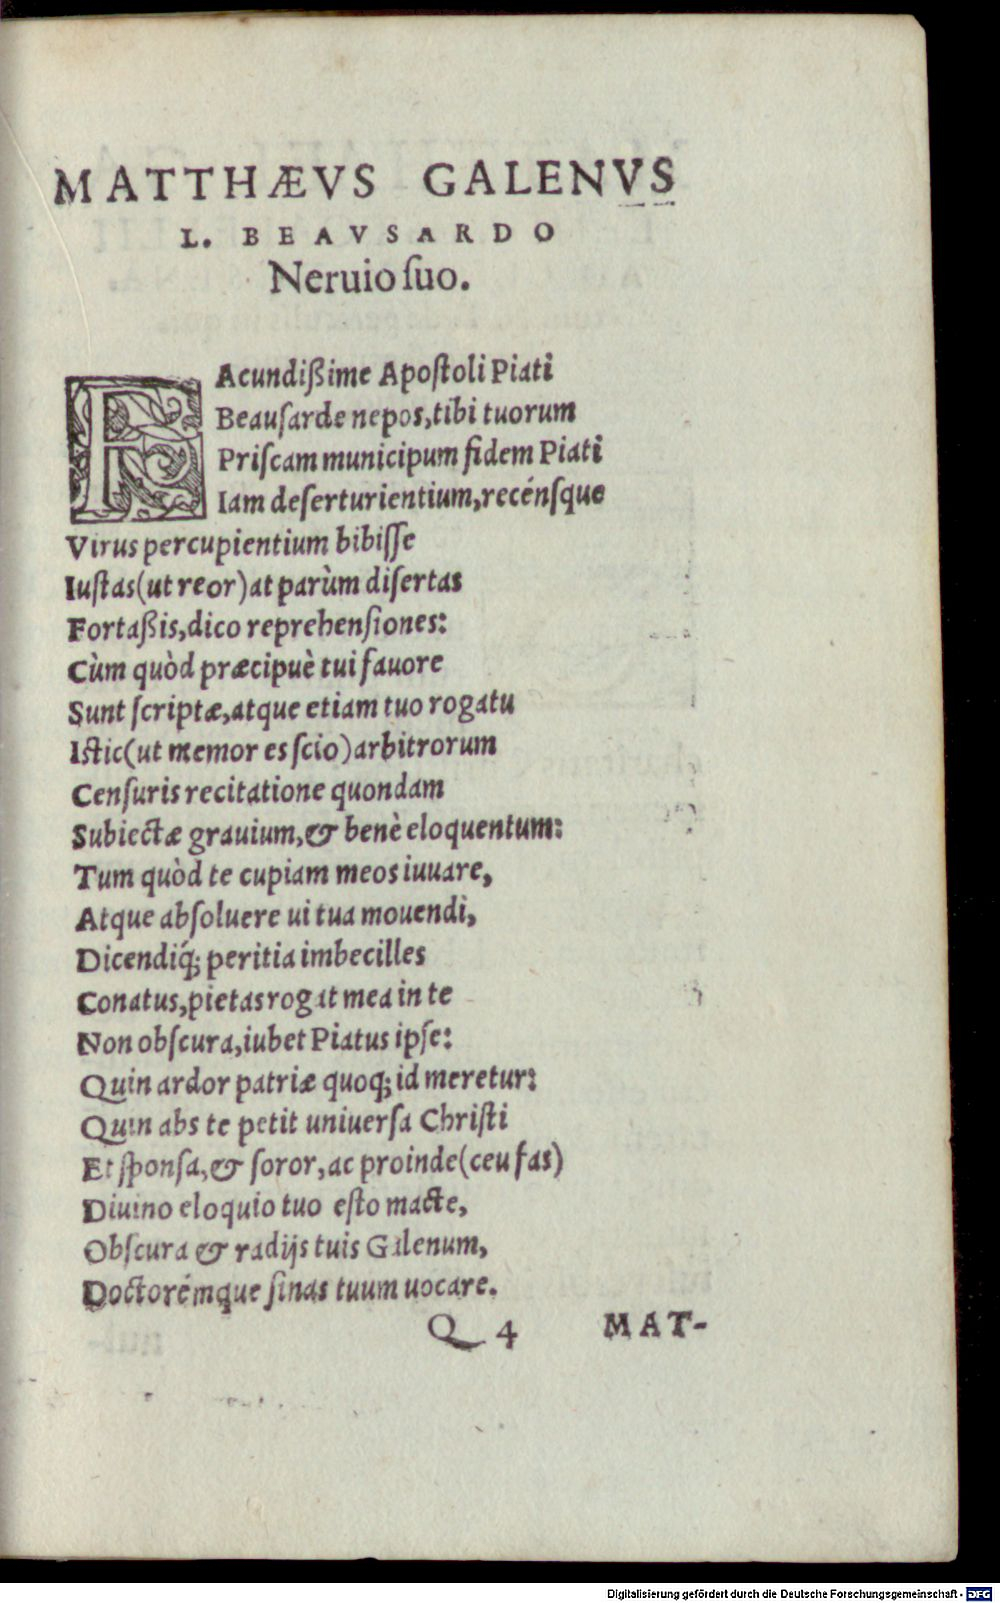 MATTHÆVS GALENVS
L. BEAVSARDO
Neruio ſuo.
FAcundißime Apoſtoli Piati
Beauſarde nepos, tibi tuorum
Priſcam municipum fidem Piati
Iam deſerturientium, recénſque
Virus percupientium bibiſſe
Iuſtas (ut reor) at parùm diſertas
Fortaßis, dico reprehenſiones:
Cùm quòd præcipuè tui fauore
Sunt ſcriptæ, atque etiam tuo rogatu
Iſtic (ut memor es ſcio) arbitrorum
Cenſuris recitatione quondam
Subiectæ grauium, & benè eloquentum:
Tum quòd te cupiam meos iuuare,
Atque abſoluere ui tua mouendi,
Dicendíq; peritia imbecilles
Conatus, pietas rogat mea in te
Non obſcura, iubet Piatus ipſe:
Quin ardor patriæ quoq; id meretur:
Quin abs te petit uniuerſa Chriſti
Et ſponſa, & ſoror, ac proinde (ceu fas)
Diuino eloquio tuo eſto macte,
Obſcura & radijs tuis Galenum,
Doctorémque ſinas tuum uocare.
Q 4 MAT-
Digitalisierung gefördert durch die Deutsche Forschungsgemeinschaft - DFG